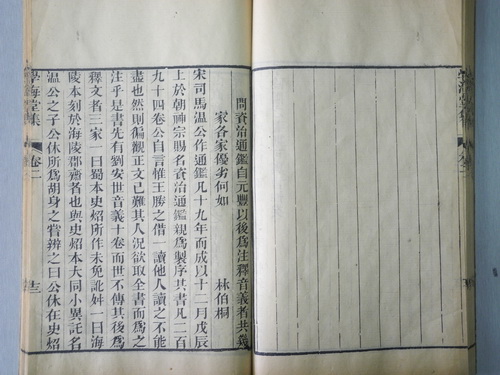 學海堂集
卷二
問資治通鑑自元豐以後爲注釋音義者共幾
家各家優劣何如 林伯桐
宋司馬溫公作通鑑凡十九年而成以十二月戊辰
上於朝神宗賜名資治通鑑親爲製序其書凡二百
九十四卷公自言惟王勝之借一讀他人讀之不能
盡也然則徧觀正文已難其人況欲取全書而爲之
注乎是書先有劉安世音義十卷而世不傳其後爲
釋文者三家一曰蜀本史炤所作未免訛舛一曰海
陵本刻於海陵郡齋者也與史炤本大同小異託名
溫公之子公休所爲胡身之嘗辨之曰公休在史炤
學海堂集
卷二
十三